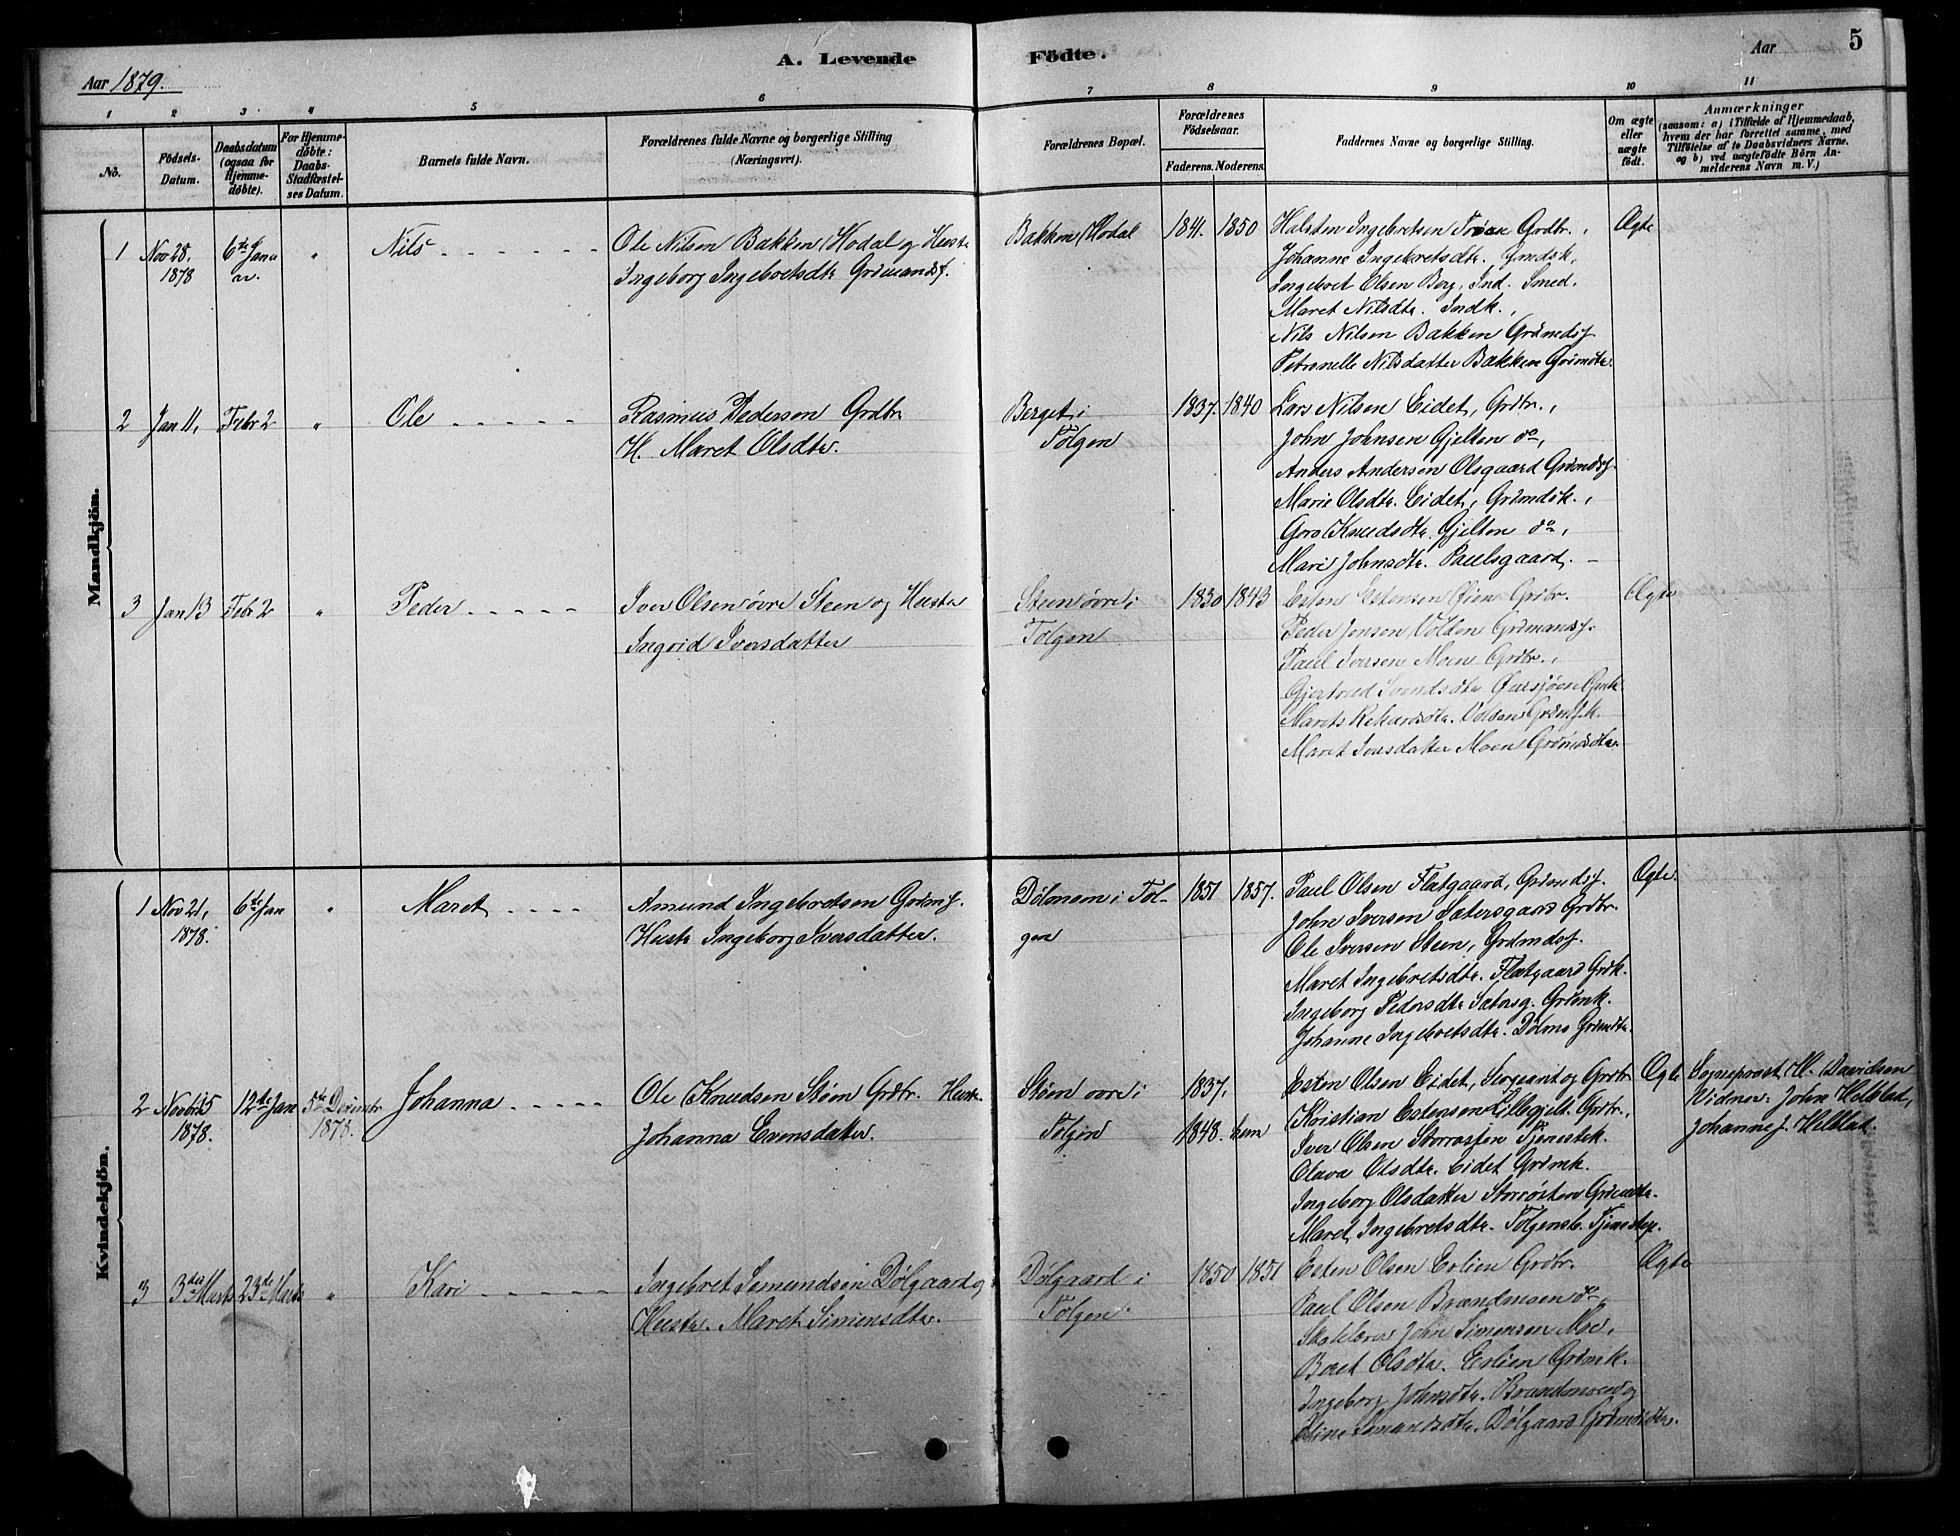 Aar 1879.
A. Levende
Födte.
Aar
5
1
2
3
4
5
6
7
8
9
10
11
No.
Födsels-
Datum.
Daabsdatum
(ogsaa for
Hjemme-
döbte).
For Hjemme-
döbte:
Daabs-
Stadfæstel-
ses Datum.
Barnets fulde Navn.
Forældrenes fulde Navne og borgerlige Stilling
(Næringsvei).
Forældrenes Bopæl.
Forældrenes
Födselsaar.
Faderens. Moderens.
Faddernes Navne og borgerlige Stilling.
Om ægte
eller
uægte
födt.
Anmærkninger
(saasom: a) i Tilfælde af Hjemmedaab,
hvem der har forrettet samme, med
Tilföielse af to Daabsvidners Navne.
og b) ved uægtefödte Börn An-
melderens Navn m. V.)
Mandkjön.
1
Nov 28,
1878
6te Janu
"
Nils
Ole Nilsen Bakken Hodal og Hustr
Ingeborg Ingebretsdtr Grdmandsf.
Bakken Hodal
1841. 1850
Halsten Ingebretsen Trøen Grdbr.,
Johanne Ingebretsdtr. Grmdsk,
Ingebret Olsen Berg, Ind. Smed.
Maret Nilsdtr. Indk.,
Nils Nilsen Bakken Grdmdsf
Petronelle Nilsdatter Bakken Grdmdtr.
Ægte
2
Jan 11,
Febr 2
"
Ole
Rasmus Pedersen Grdbr
H. Maret Olsdtr.
Berget i
Tolgen
1837. 1840
Lars Nilsen Eidet, Grdbr.,
John Johnsen Gjelten do,
Anders Andersen Olsgaard Grdmdsf.
Marie Olsdtr. Eidet, Grdmdsk.,
Goro Knudsdtr. Gjelten do,
Mari Johnsdtr. Paulsgaard. –
3
Jan 13
Febr 2
"
Peder
Iver Olsen øvre Steen og Hustr
Ingrid Iversdatter
Steen øvre i
Tolgen
1830 1843
Esten Estensen Øien Grdbr.
Peder Jonsen Volden Grdmandsf.
Paul Iversen Moen Grdbr.,
Gjertrud Svendsdtr Øversjøen
Maret Volden Grdmfk.
Maret Iversdatter Moen Grdmdsdtr.
Ægte
Kvindekjön.
1
Nov 21,
1878.
6te Jan
"
Maret
Amund Ingebretsen Grdmf.
Hustr Ingeborg Iversdatter.
Dölmoen i Tol-
gen
1851 1857.
Paul Olsen Flatgaard, Grdmdsf.
John Iversen Sætersgaard Grdbr.
Ole Iversen Steen, Grdmdsf.
Maret Ingebretsdtr. Flatgaard Grdk.
Ingeborg Pedersdtr Sætersg. Grdmk.
Johanne Ingebretsdtr. Dölmo Grdmdtr.
Ægte.
2
Novbr 15
1878.
12te Jan
5te Decembr
1878.
Johanna
Ole Knudsen Støen Grdbr. Hustr.
Johanna Evensdatter.
Støen øvre i
Tolgen
1837.
1848. hun
Esten Olsen Eidet, Sergeant og Grdbr
Kristian Estensen Lillegjelt. Grdbr.,
Iver Olsen Storrøsten Tjenestek.
Olava Olsdtr. Eidet Grdmk.
Ingeborg Olsdatter Storrøsten Grdmdtr.
Maret Ingebretsdtr. Tolgensb. Tjenestep.
Ægte
Sogneprest H. Davidsen
Vidner: John Helblad,
Johanne J. Helblad.
3
3die Marts
23de Marts
"
Kari
Ingebret Semundsen Dölgaard og
Hustr. Maret Simensdtr.
Dölgaard i
Tolgen
1850 1851
Esten Olsen Erlien Grdbr.
Paul Olsen Brændmoen do
Skolelærer John Simensen Moe,
Beret Olsdtr. Erlien Grdmk.
Ingeborg Johnsdtr. Brændmoen og
Semundsdtr. Dölgaard Grdmdsdtr.
Ægte